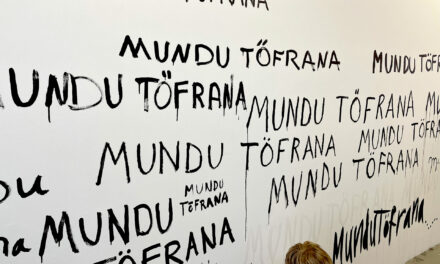 TÖFRANA
MUNDU TŐFRANA
MUNDU
MUNDU TŐFRANA
MUNDU TŐFRANA
MUNDU TÖFRANA
MUNDU TÖFRANA
MUNDU TÖFRANA
MUNDU
TÖFRANA
MUNDU
TÖFRANA
MUNDU TÖFRANA
MunduTöfrana....